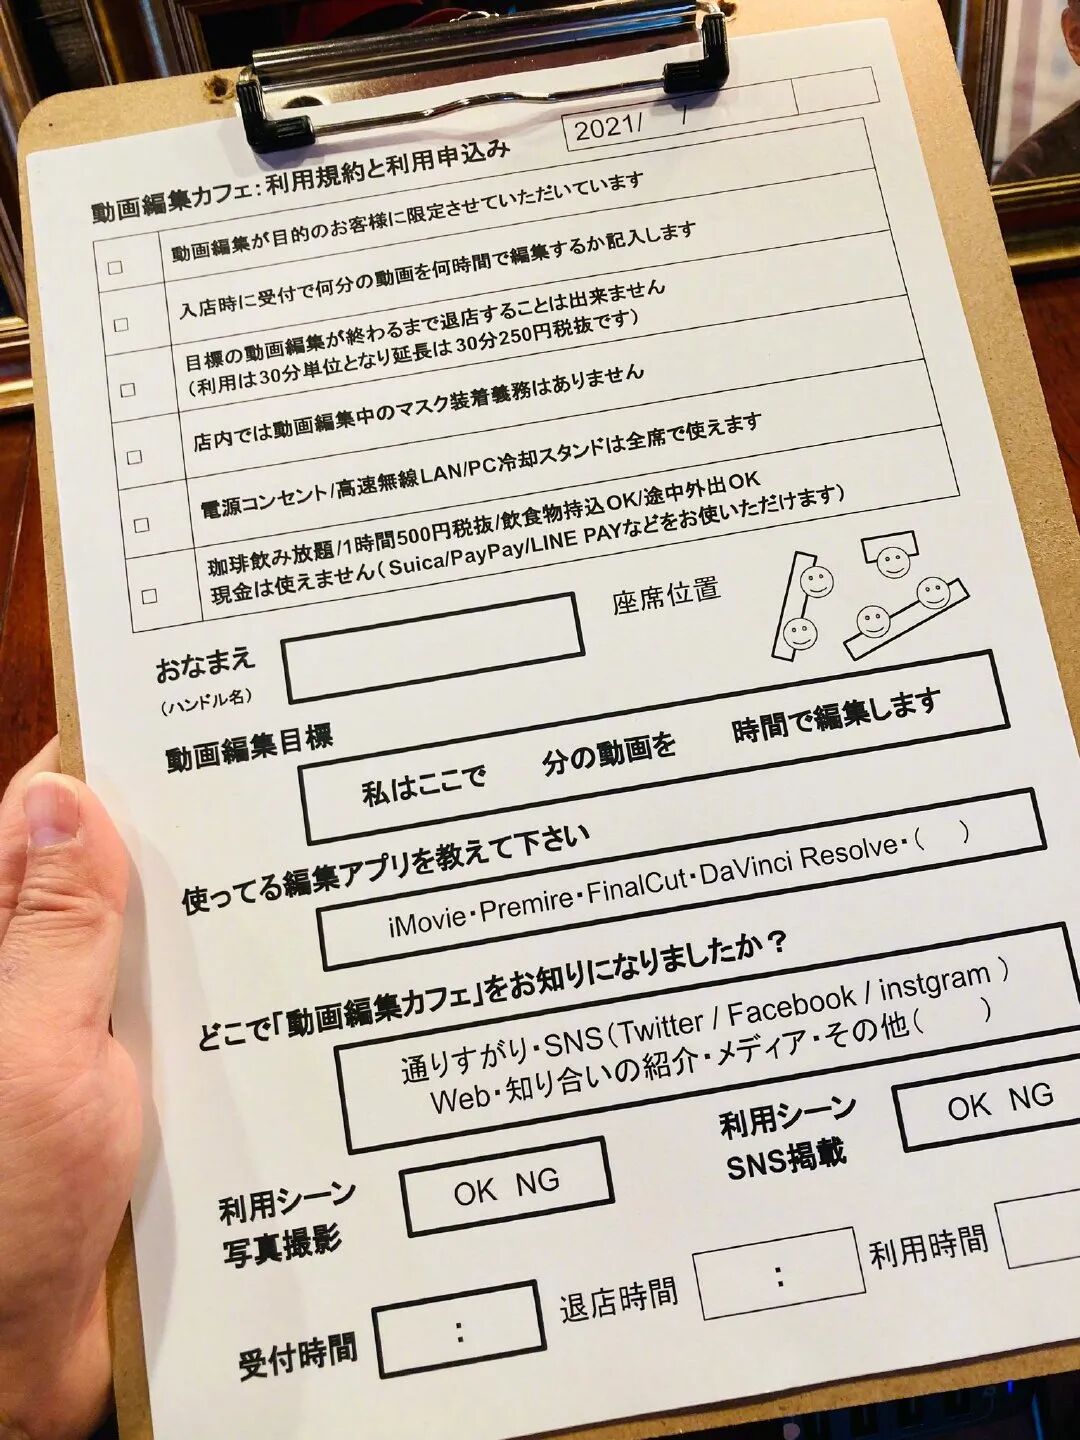 2021/ /
動画編集カフェ：利用規約と利用申込み
□ 動画編集が目的のお客様に限定させていただいています
□ 入店時に受付で何分の動画を何時間で編集するか記入します
□ 目標の動画編集が終わるまで退店することは出来ません
（利用は30分単位となり延長は30分250円税抜です）
□ 店内では動画編集中のマスク装着義務はありません
□ 電源コンセント/高速無線LAN/PC冷却スタンドは全席で使えます
□ 珈琲飲み放題/1時間500円税抜/飲食物持込OK/途中外出OK
現金は使えません（Suica/PayPay/LINE PAYなどをお使いただけます）
おなまえ
（ハンドル名）
座席位置
動画編集目標
私はここで 分の動画を 時間で編集します
使ってる編集アプリを教えて下さい
iMovie・Premire・FinalCut・DaVinci Resolve・（ ）
どこで「動画編集カフェ」をお知りになりましたか？
通りすがり・SNS（Twitter / Facebook / instgram ）
Web・知り合いの紹介・メディア・その他（ ）
利用シーン
写真撮影
OK NG
利用シーン
SNS掲載
OK NG
受付時間 :
退店時間 :
利用時間